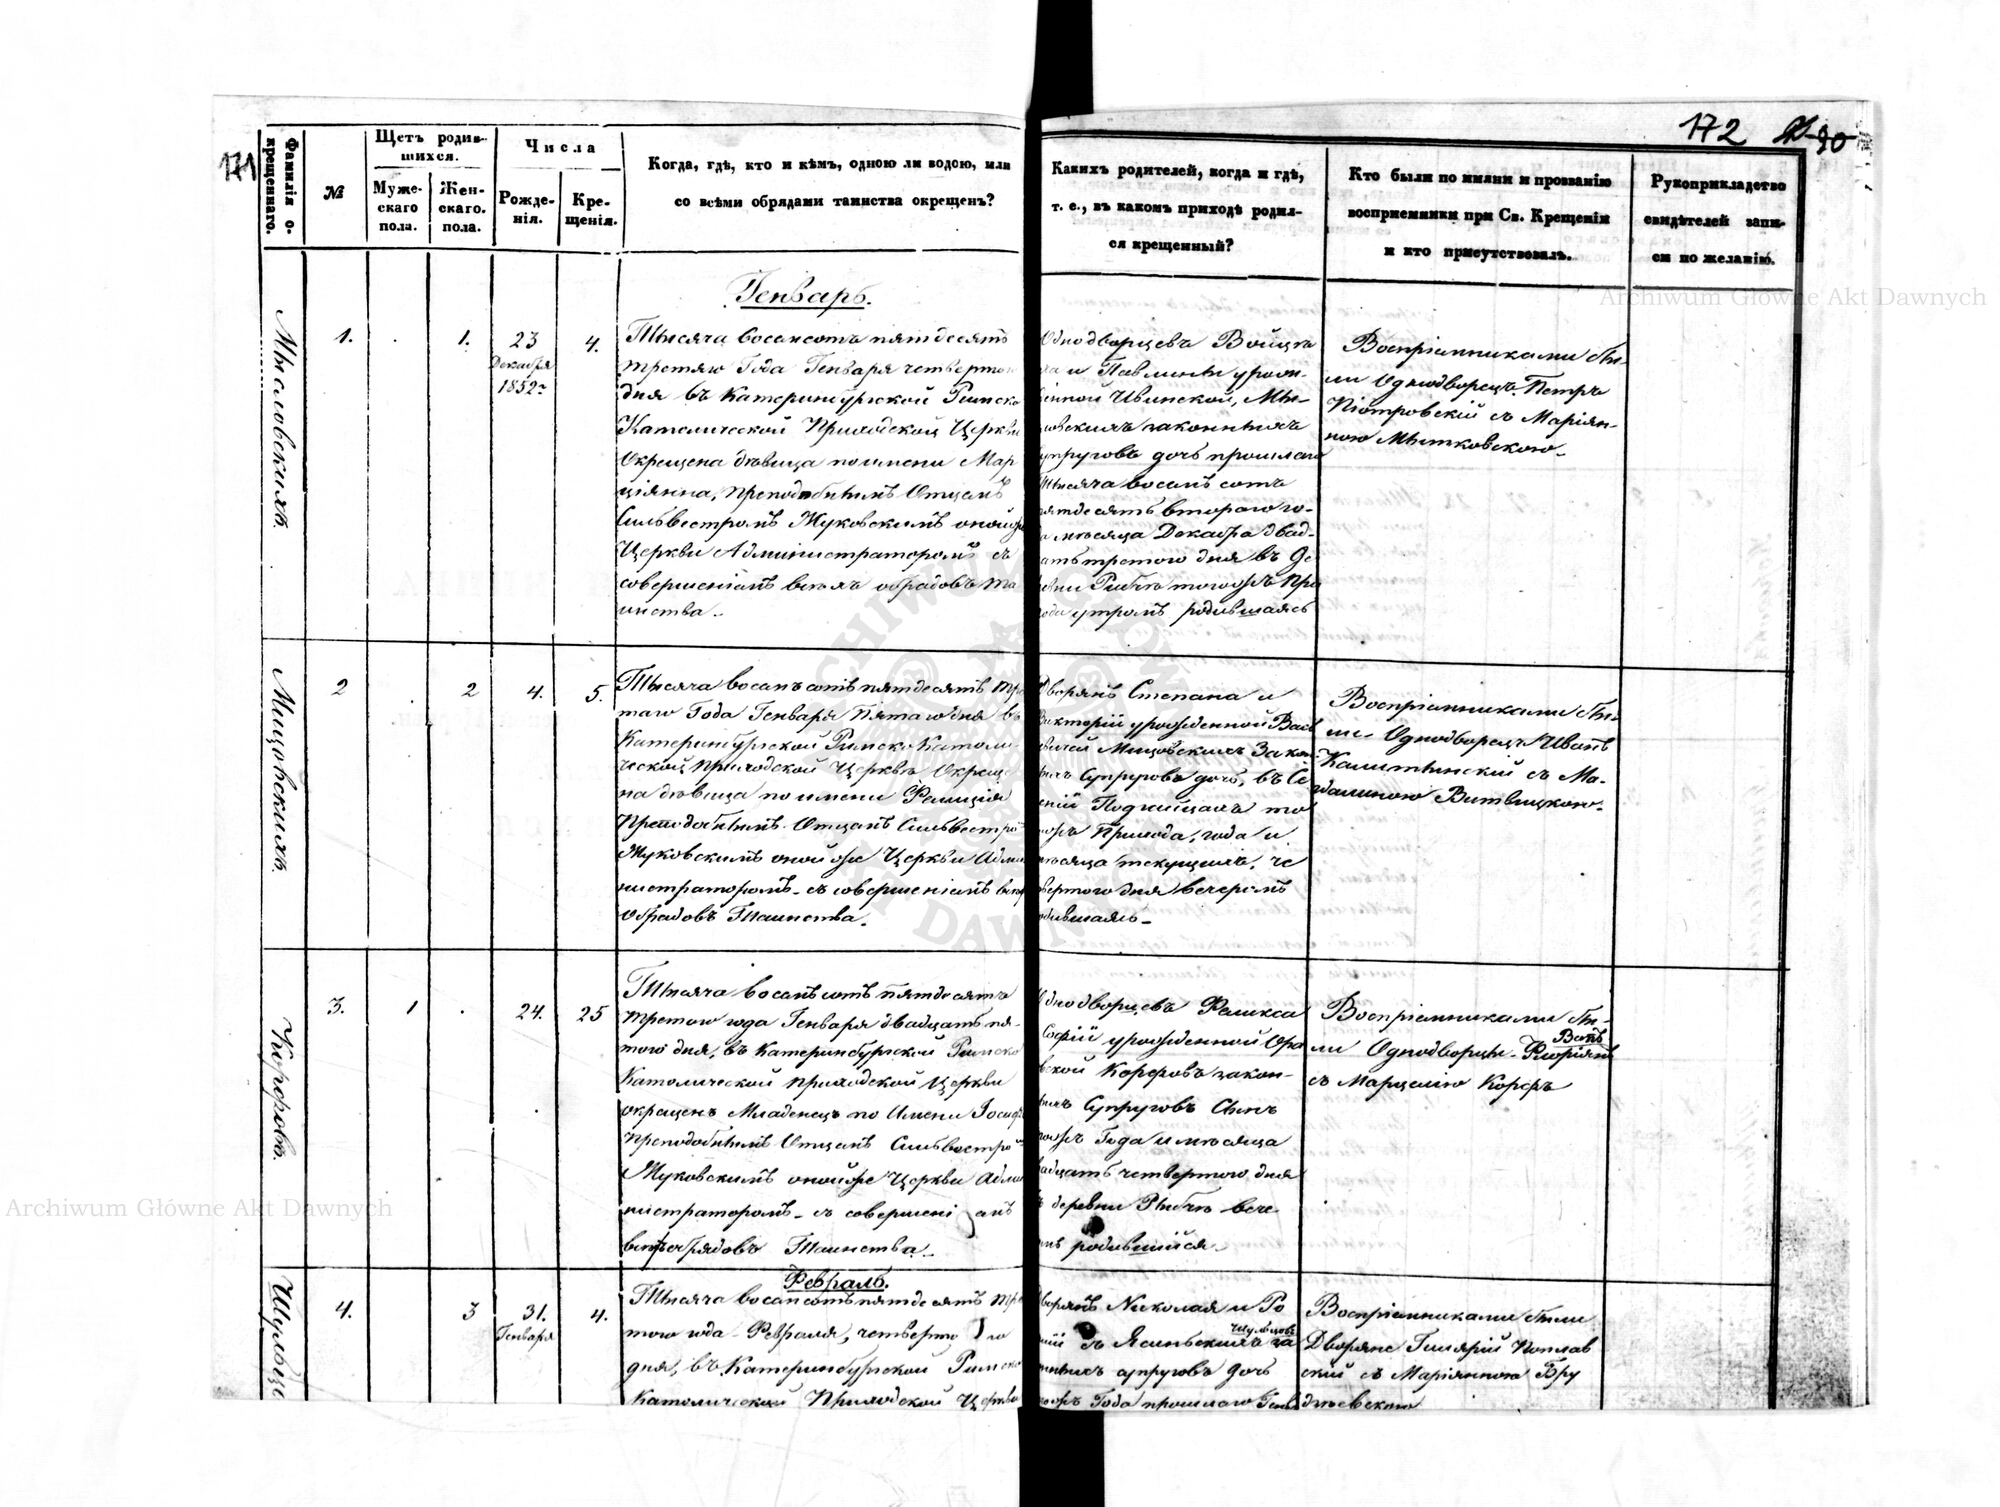 171
172
90
Фамилія о-
крещеннаго.
№
Щетъ родив-
шихся.
Муже-
скаго
пола.
Жен-
скаго.
пола.
Числа
Рожде-
нія.
Кре-
щенія.
Когда, гдѣ, кто и кѣмъ, одною ли водою, или
со всѣми обрядами таинства окрещенъ?
Какихъ родителей, когда и гдѣ,
т. е., въ какомъ приходѣ родил-
ся крещенный?
Кто были по имяни и прозванію
воспріемники при Св. Крещеніи
и кто присутствовалъ.
Рукоприкладство
свидѣтелей запи-
си по желанію.
Archiwum Główne Akt Dawnych
Генварь.
Мысловскихъ.
1.
1.
23
Декабря
1852
4.
Тысяча восемсотъ пятдесятъ
третяго Года Генваря четвертого
дня въ Катеринбургской Римско
Католической Приходской Церкви
Окрещена дѣвица по имени Мар
ціянна, преподобнымъ Отцемъ
Сильвестромъ Жуковскимъ оной же
Церкви Администраторомъ съ
совершеніемъ всехъ обрядовъ та
инства.
Однодворцевъ Войцѣ
ха и Павлины урож-
Ивинской, Мы-
ловскихъ законныхъ
супруговъ дочь прошлаго
Тысяча восемъ сотъ
пятдесятъ втораго го-
да мѣсяца Декабря двад-
цать третого дня въ де
ревни Рыбкѣ тогожъ при
хода утромъ родившаясь
Воспріемниками бы-
ли Однодворецъ Петръ
Піотровскій съ Маріян-
ною Мытковскою.
Мицовскихъ.
2
2
4.
5.
Тысяча восемъ сотъ пятдесятъ тре
таго Года Генваря Пятаго дня въ
Катеринбургской Римско Католи-
ческой приходской Церквѣ Окреще
на дѣвица по имени Фелиція
Преподобнымъ Отцемъ Сильвестро
Жуковскимъ оной же Церкви Адми
нистраторомъ съ совершеніемъ всехъ
обрядовъ Таинства.
Дворянъ Степана и
Викторіи урожденной Вась
Мицовскихъ Закон
ныхъ Супруговъ дочь, въ Се
тогожъ Прихода, года и
мѣсяца текущихъ, че
твертого дня вечеромъ
родившаясь
Воспріемниками бы-
ли Однодворецъ Иванъ
Калитынскій съ Ма-
далиною Витвицкою.
Кореровъ.
3.
1
24.
25
Тысяча восемъ сотъ пятдесятъ
третого года Генваря двадцать пя-
того дня, въ Катеринбургской Римско
Католической приходской Церкви
окрещенъ Младенецъ по Имени Іосифъ
преподобнымъ Отцемъ Сильвестро
Жуковскимъ оной же Церкви Адми
нистраторомъ съ совершеніемъ
всехъ обрядовъ Таинства.
Однодворцевъ Феликса
Софіи урожденной Ора
вской Кореровъ закон-
ныхъ Супруговъ Сынъ
тогожъ Года и мѣсяца
двадцать четвертого дня
въ деревни Рыбкѣ вече
ромъ родившийся
Воспріемниками бы-
ли Однодворцы Флоріянъ
съ Марцелію Кореръ
Шульцо
Февраль.
4.
3
31.
Генваря
4.
Тысяча восемсотъ пятдесятъ тре
того года Февраля, четвертого
дня, въ Катеринбургской Римско
Католической Приходской Церкви
Дворянъ Николая и Ро
съ Ясиньскихъ Шульцовъ за
конныхъ супруговъ дочь
тогожъ Года прошлаго Генв
Воспріемниками были
Дворяне Гилярій Поплав
ский съ Маріянною Бру
дзѣевскою
Archiwum Główne Akt Dawnych